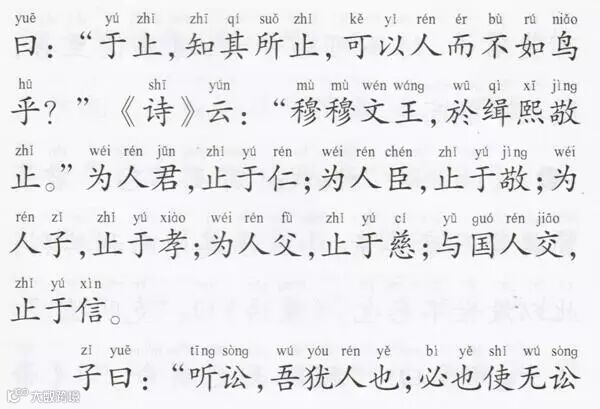 yuē yú zhǐ zhī qí suǒ zhǐ kě yǐ rén ér bù rú niǎo
曰：“于止，知其所止，可以人而不如鸟
hū shī yún mù mù wén wáng wū qì xī jìng
乎？”《诗》云：“穆穆文王，於缉熙敬
zhǐ wéi rén jūn zhǐ yú rén wéi rén chén zhǐ yú jìng wéi
止。”为人君，止于仁；为人臣，止于敬；为
rén zǐ zhǐ yú xiào wéi rén fù zhǐ yú cí yǔ guó rén jiāo
人子，止于孝；为人父，止于慈；与国人交，
zhǐ yú xìn
止于信。
zǐ yuē tīng sòng wú yóu rén yě bì yě shǐ wú sòng
子曰：“听讼，吾犹人也；必也使无讼
大威跨境